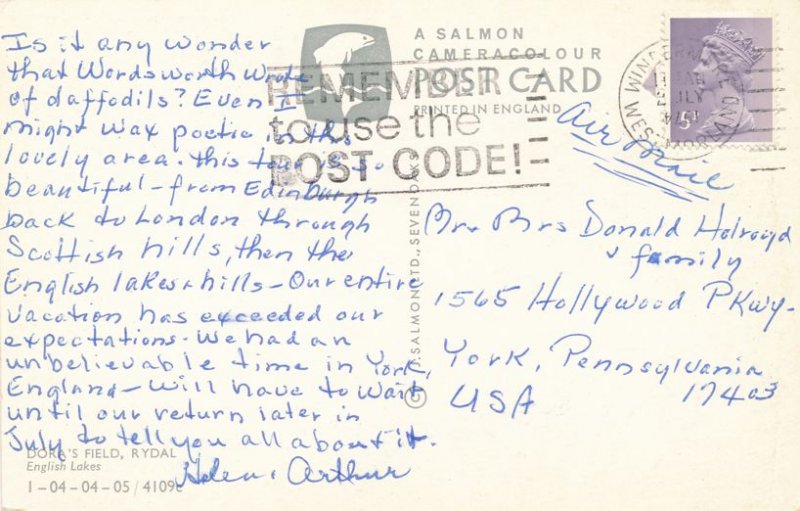 Is it any wonder
that Wordsworth wrote
of daffodils? Even I
might wax poetic in this
lovely area. This tour is so
beautiful - from Edinburgh
back to London through
Scottish hills, then the
English lakes & hills - Our entire
vacation has exceeded our
expectations. We had an
unbelievable time in York,
England - Will have to wait
until our return later in
July to tell you all about it.
Helen & Arthur
DORA'S FIELD, RYDAL
English Lakes
1-04-04-05 / 4109c
A SALMON
CAMERACOLOUR
POST CARD
PRINTED IN ENGLAND
REMEMBER
to use the
POST CODE!
© J. SALMON LTD., SEVENOAKS
Air Mail
Mr. Mrs Donald Holroyd
& family
1565 Hollywood PKwy-
York, Pennsylvania
17403
USA
JLY